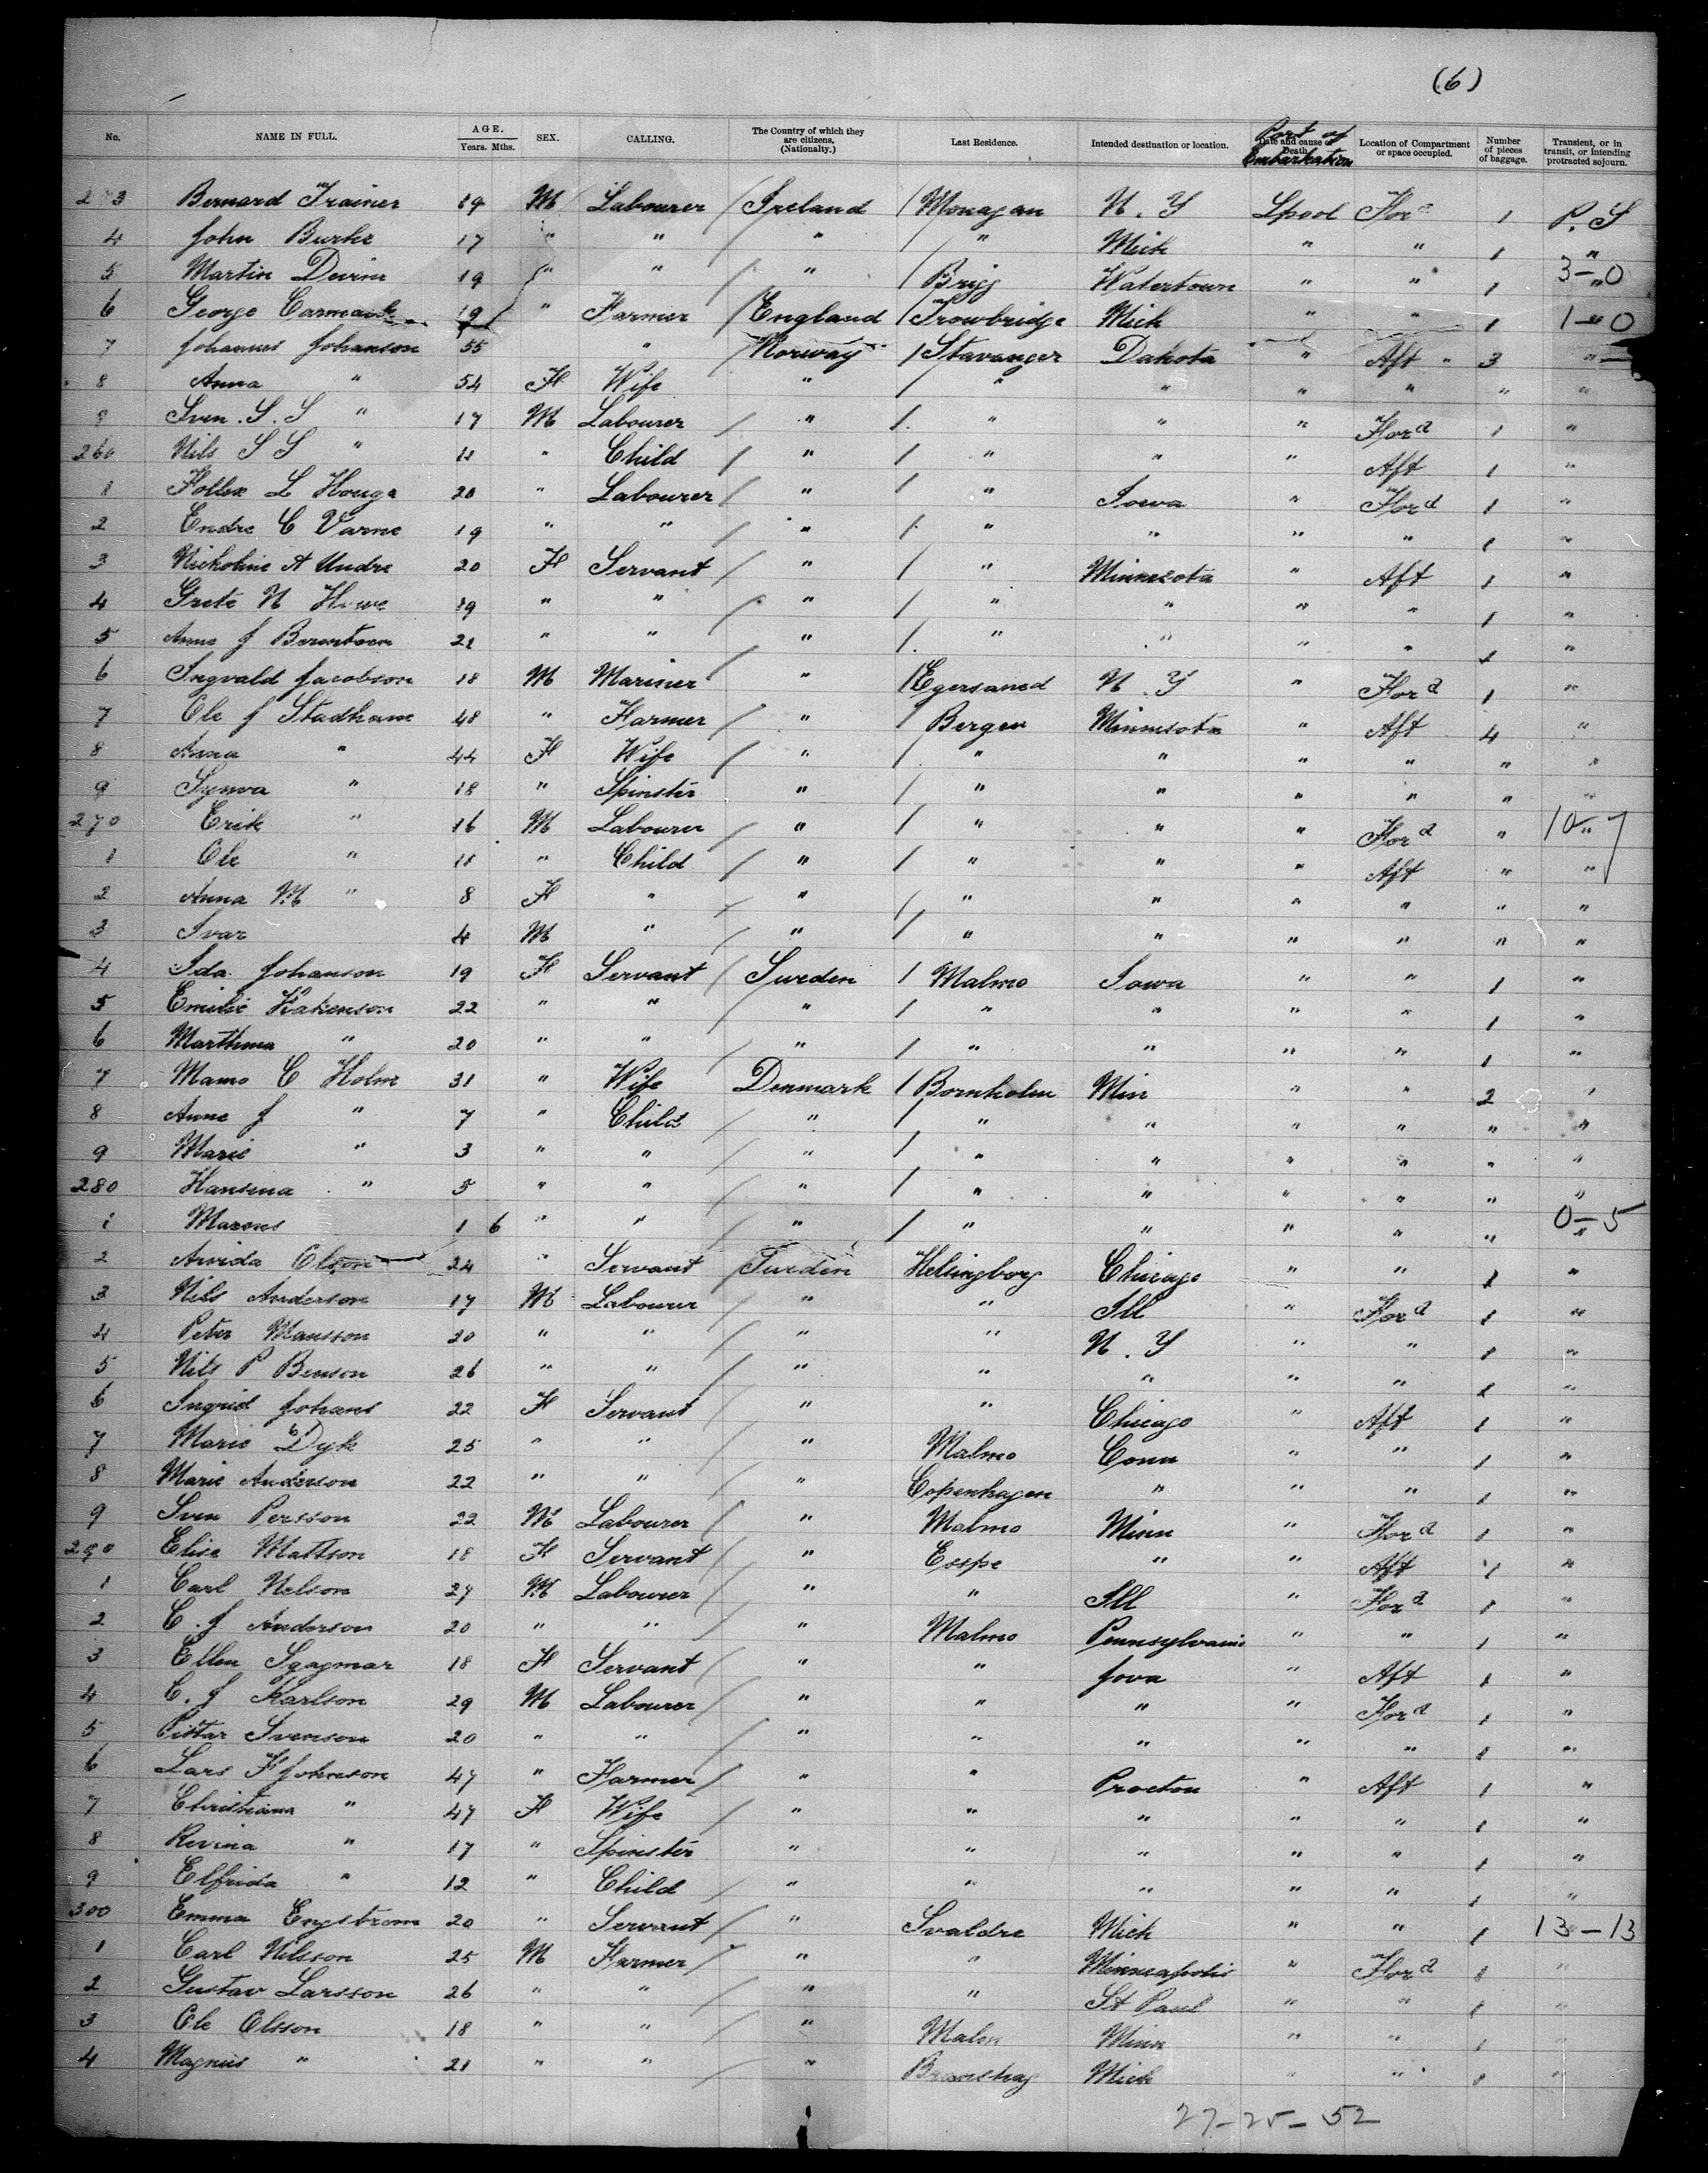 (6)
No. NAME IN FULL. AGE. Years. Mths. SEX. CALLING. The Country of which they are citizens. (Nationality.) Last Residence. Intended destination or location. Date and cause of Death. Port of Embarkation Location of Compartment or space occupied. Number of pieces of baggage. Transient, or in transit, or intending protracted sojourn.
253 Bernard Trainer 19 M Labourer Ireland Monagan N.Y Lpool Ford 1 P.S
4 John Burke 17 " " " " Mich " " 1 "
5 Martin Devine 19 " " " Brigg Watertown " " 1 " 3-0
6 George Carmack 19 " Farmer England Trowbridge Mich " " 1 " 1-0
7 Johannes Johanson 55 " Norway Stavanger Dakota " Aft " 3 "
8 Anna " 54 F Wife " " " " " " "
9 Sven. S. S " 17 M Labourer " " " " Ford 1 "
260 Nils S S " 11 " Child " " " " Aft 1 "
1 L Houge 20 " Labourer " " Iowa " Ford 1 "
2 Endre C Varne 19 " " " " " " " 1 "
3 Nickoline A Undre 20 F Servant " " Minnesota " Aft 1 "
4 Grete N 19 " " " " " " " 1 "
5 Anne J 21 " " " " " " " 1 "
6 Ingvald Jacobson 18 M Mariner " Egersaned N.Y " Ford 1 "
7 Ole J Stadham 48 " Farmer " Bergen Minnesota " Aft 4 "
8 Anna " 44 F Wife " " " " " " "
9 Synva " 18 " Spinster " " " " " " "
270 Erik " 16 M Labourer " " " " Ford " " 10-7
1 Ole " 11 " Child " " " " Aft " "
2 Anna M " 8 F " " " " " " " "
3 Ivar 4 M " " " " " " " "
4 Ida Johanson 19 F Servant Sweden Malmo Iowa " " 1 "
5 Emilie Hakenson 22 " " " " " " " 1 "
6 Marthma " 20 " " " " " " " 1 "
7 Mamo C Holm 31 " Wife Denmark Bornholm Min " " 2 "
8 Anne J " 7 " Child " " " " " " "
9 Marie " 3 " " " " " " " " "
280 Hansina " 5 " " " " " " " " "
1 1 6 " " " " " " " " " 0-5
2 Arvida Olson 24 " Servant Sweden Helsingborg Chicago " " 1 "
3 Nils Anderson 17 M Labourer " " Ill " Ford 1 "
4 Peter Mansson 20 " " " " N.Y " " 1 "
5 Nils P Benson 26 " " " " " " " 1 "
6 Ingrid Johans 22 F Servant " " Chicago " Aft 1 "
7 Marie Dyk 25 " " " Malmo Conn " " 1 "
8 Marie Anderson 22 " " " Copenhagen " " " 1 "
9 Sven Persson 22 M Labourer " Malmo Minn " Ford 1 "
290 Elise Mattson 18 F Servant " Esspe " " Aft 1 "
1 Carl Nelson 27 M Labourer " " Ill " Ford 1 "
2 C. J Anderson 20 " " " Malmo Pennsylvania " " 1 "
3 Ellen Sgagmar 18 F Servant " " Jova " Aft 1 "
4 C. J Karlson 29 M Labourer " " " " Ford 1 "
5 Svenson 20 " " " " " " " 1 "
6 Lars F Johnson 47 " Farmer " " Procton " Aft 1 "
7 Christiana " 47 F Wife " " " " " 1 "
8 Revina " 17 " Spinster " " " " " 1 "
9 Elfrida " 12 " Child " " " " " 1 "
300 Emma Engstrom 20 " Servant " Svaldre Mich " " 1 13-13
1 Carl Nilsson 25 M Farmer " " Minneapolis " Ford 1 "
2 Gustav Larsson 26 " " " " St Paul " " 1 "
3 Ole Olsson 18 " " " Malm Minn " " 1 "
4 Magnus " 21 " " " Mich " " 1 "
27-25-52